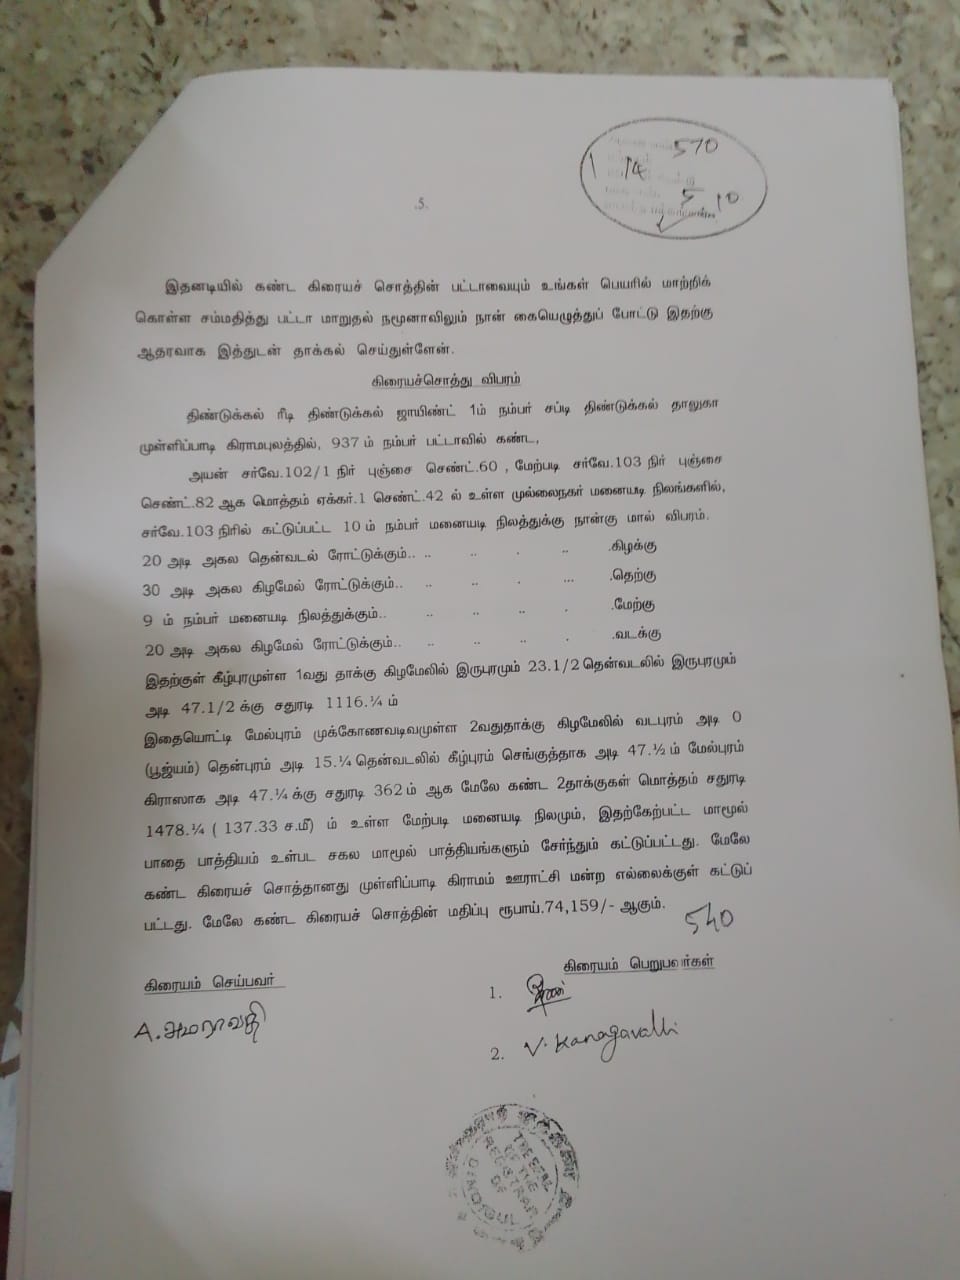 570
14
5 10
.5.
இதனடியில் கண்ட கிரையச் சொத்தின் பட்டாவையும் உங்கள் பெயரில் மாற்றிக்
கொள்ள சம்மதித்து பட்டா மாறுதல் நமூனாவிலும் நான் கையெழுத்துப் போட்டு இதற்கு
ஆதரவாக இத்துடன் தாக்கல் செய்துள்ளேன்.
கிரையச்சொத்து விபரம்
திண்டுக்கல் ரீடி திண்டுக்கல் ஜாயிண்ட் 1ம் நம்பர் சப்டி திண்டுக்கல் தாலுகா
முள்ளிப்பாடி கிராமபுலத்தில், 937 ம் நம்பர் பட்டாவில் கண்ட,
அயன் சர்வே.102/1 நிர் புஞ்சை செண்ட்.60 , மேற்படி சர்வே.103 நிர் புஞ்சை
செண்ட்.82 ஆக மொத்தம் ஏக்கர்.1 செண்ட்.42 ல் உள்ள முல்லைநகர் மனையடி நிலங்களில்,
சர்வே.103 நிரில் கட்டுப்பட்ட 10 ம் நம்பர் மனையடி நிலத்துக்கு நான்கு மால் விபரம்.
20 அடி அகல தென்வடல் ரோட்டுக்கும்.. .. .. . .. .கிழக்கு
30 அடி அகல கிழமேல் ரோட்டுக்கும்.. .. .. . ... .தெற்கு
9 ம் நம்பர் மனையடி நிலத்துக்கும்.. .. .. .. . .மேற்கு
20 அடி அகல கிழமேல் ரோட்டுக்கும்.. .. .. .. . .வடக்கு
இதற்குள் கீழ்புரமுள்ள 1வது தாக்கு கிழமேலில் இருபுரமும் 23.1/2 தென்வடலில் இருபுரமும்
அடி 47.1/2 க்கு சதுரடி 1116.¼ ம்
இதையொட்டி மேல்புரம் முக்கோணவடிவமுள்ள 2வதுதாக்கு கிழமேலில் வடபுரம் அடி 0
(பூஜ்யம்) தென்புரம் அடி 15.¼ தென்வடலில் கீழ்புரம் செங்குத்தாக அடி 47.½ ம் மேல்புரம்
கிராஸாக அடி 47.¼ க்கு சதுரடி 362 ம் ஆக மேலே கண்ட 2தாக்குகள் மொத்தம் சதுரடி
1478.¼ ( 137.33 ச.மீ) ம் உள்ள மேற்படி மனையடி நிலமும், இதற்கேற்பட்ட மாமூல்
பாதை பாத்தியம் உள்பட சகல மாமூல் பாத்தியங்களும் சேர்ந்தும் கட்டுப்பட்டது. மேலே
கண்ட கிரையச் சொத்தானது முள்ளிப்பாடி கிராமம் ஊராட்சி மன்ற எல்லைக்குள் கட்டுப்
பட்டது. மேலே கண்ட கிரையச் சொத்தின் மதிப்பு ரூபாய்.74,159/- ஆகும்.
540
கிரையம் செய்பவர்
கிரையம் பெறுபவர்கள்
A. அமராவதி
1.
2. V. Kanagavalli
THE SEAL
OF THE
REGISTRAR
OF
DINDIGUL